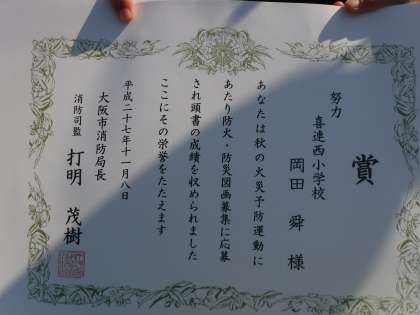 賞
努力
喜連西小学校
岡田 舜 様
あなたは秋の火災予防運動に
あたり防火・防災図画募集に応募
され頭書の成績を収められました
ここにその栄誉をたたえます
平成二十七年十一月八日
大阪市消防局長
消防司監 打明 茂樹